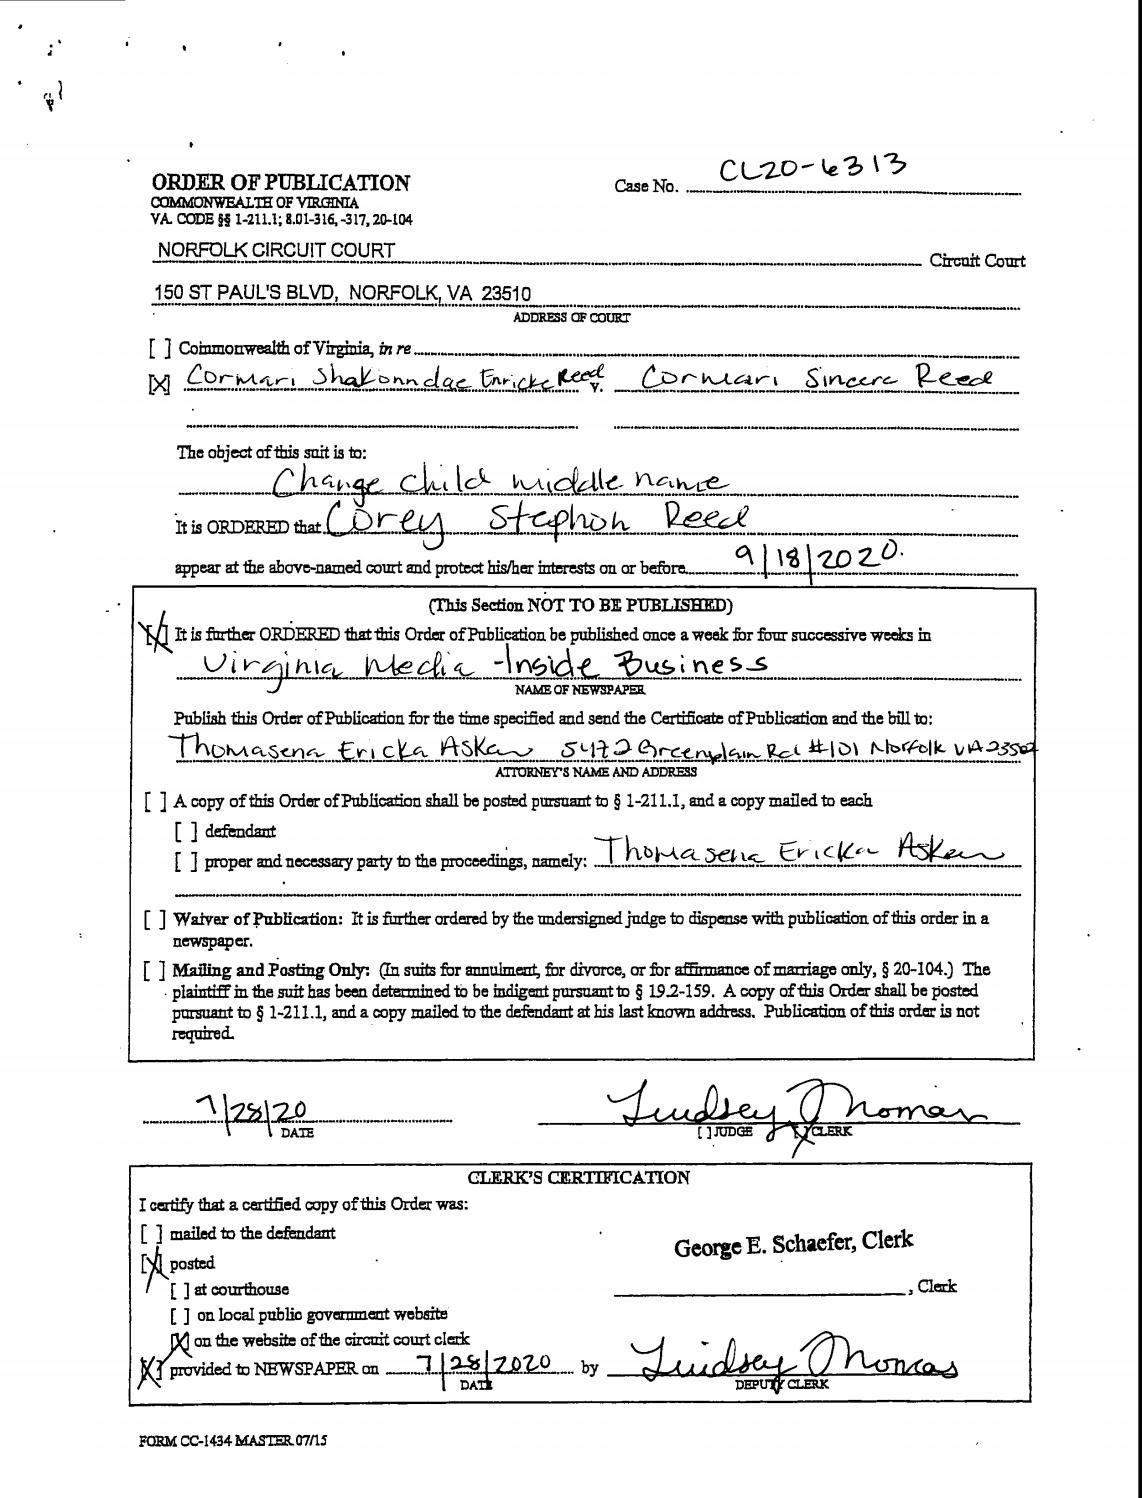 ORDER OF PUBLICATION
Case No. CL20-6313
COMMONWEALTH OF VIRGINIA
VA. CODE §§ 1-211.1; 8.01-316, -317, 20-104
NORFOLK CIRCUIT COURT Circuit Court
150 ST PAUL'S BLVD, NORFOLK, VA 23510
ADDRESS OF COURT
[ ] Commonwealth of Virginia, in re
[X] Cormari Shakonndae Enricke Reed v. Cormari Sincere Reed
The object of this suit is to:
Change child middle name
It is ORDERED that Corey Stephon Reed
appear at the above-named court and protect his/her interests on or before 9/18/2020.
(This Section NOT TO BE PUBLISHED)
[X] It is further ORDERED that this Order of Publication be published once a week for four successive weeks in
Virginia Media - Inside Business
NAME OF NEWSPAPER
Publish this Order of Publication for the time specified and send the Certificate of Publication and the bill to:
Thomasena Ericka Askew 5472 Greenplain Rd #101 Norfolk VA 23502
ATTORNEY'S NAME AND ADDRESS
[ ] A copy of this Order of Publication shall be posted pursuant to § 1-211.1, and a copy mailed to each
[ ] defendant
[ ] proper and necessary party to the proceedings, namely: Thomasena Ericka Askew
[ ] Waiver of Publication: It is further ordered by the undersigned judge to dispense with publication of this order in a
newspaper.
[ ] Mailing and Posting Only: (In suits for annulment, for divorce, or for affirmance of marriage only, § 20-104.) The
plaintiff in the suit has been determined to be indigent pursuant to § 19.2-159. A copy of this Order shall be posted
pursuant to § 1-211.1, and a copy mailed to the defendant at his last known address. Publication of this order is not
required.
7/28/20 Lindsey Thomas
DATE [ ] JUDGE [X] CLERK
CLERK'S CERTIFICATION
I certify that a certified copy of this Order was:
[ ] mailed to the defendant
George E. Schaefer, Clerk
[X] posted
[ ] at courthouse , Clerk
[ ] on local public government website
[X] on the website of the circuit court clerk
[X] provided to NEWSPAPER on 7/28/2020 by Lindsey Thomas
DATE DEPUTY CLERK
FORM CC-1434 MASTER 07/15